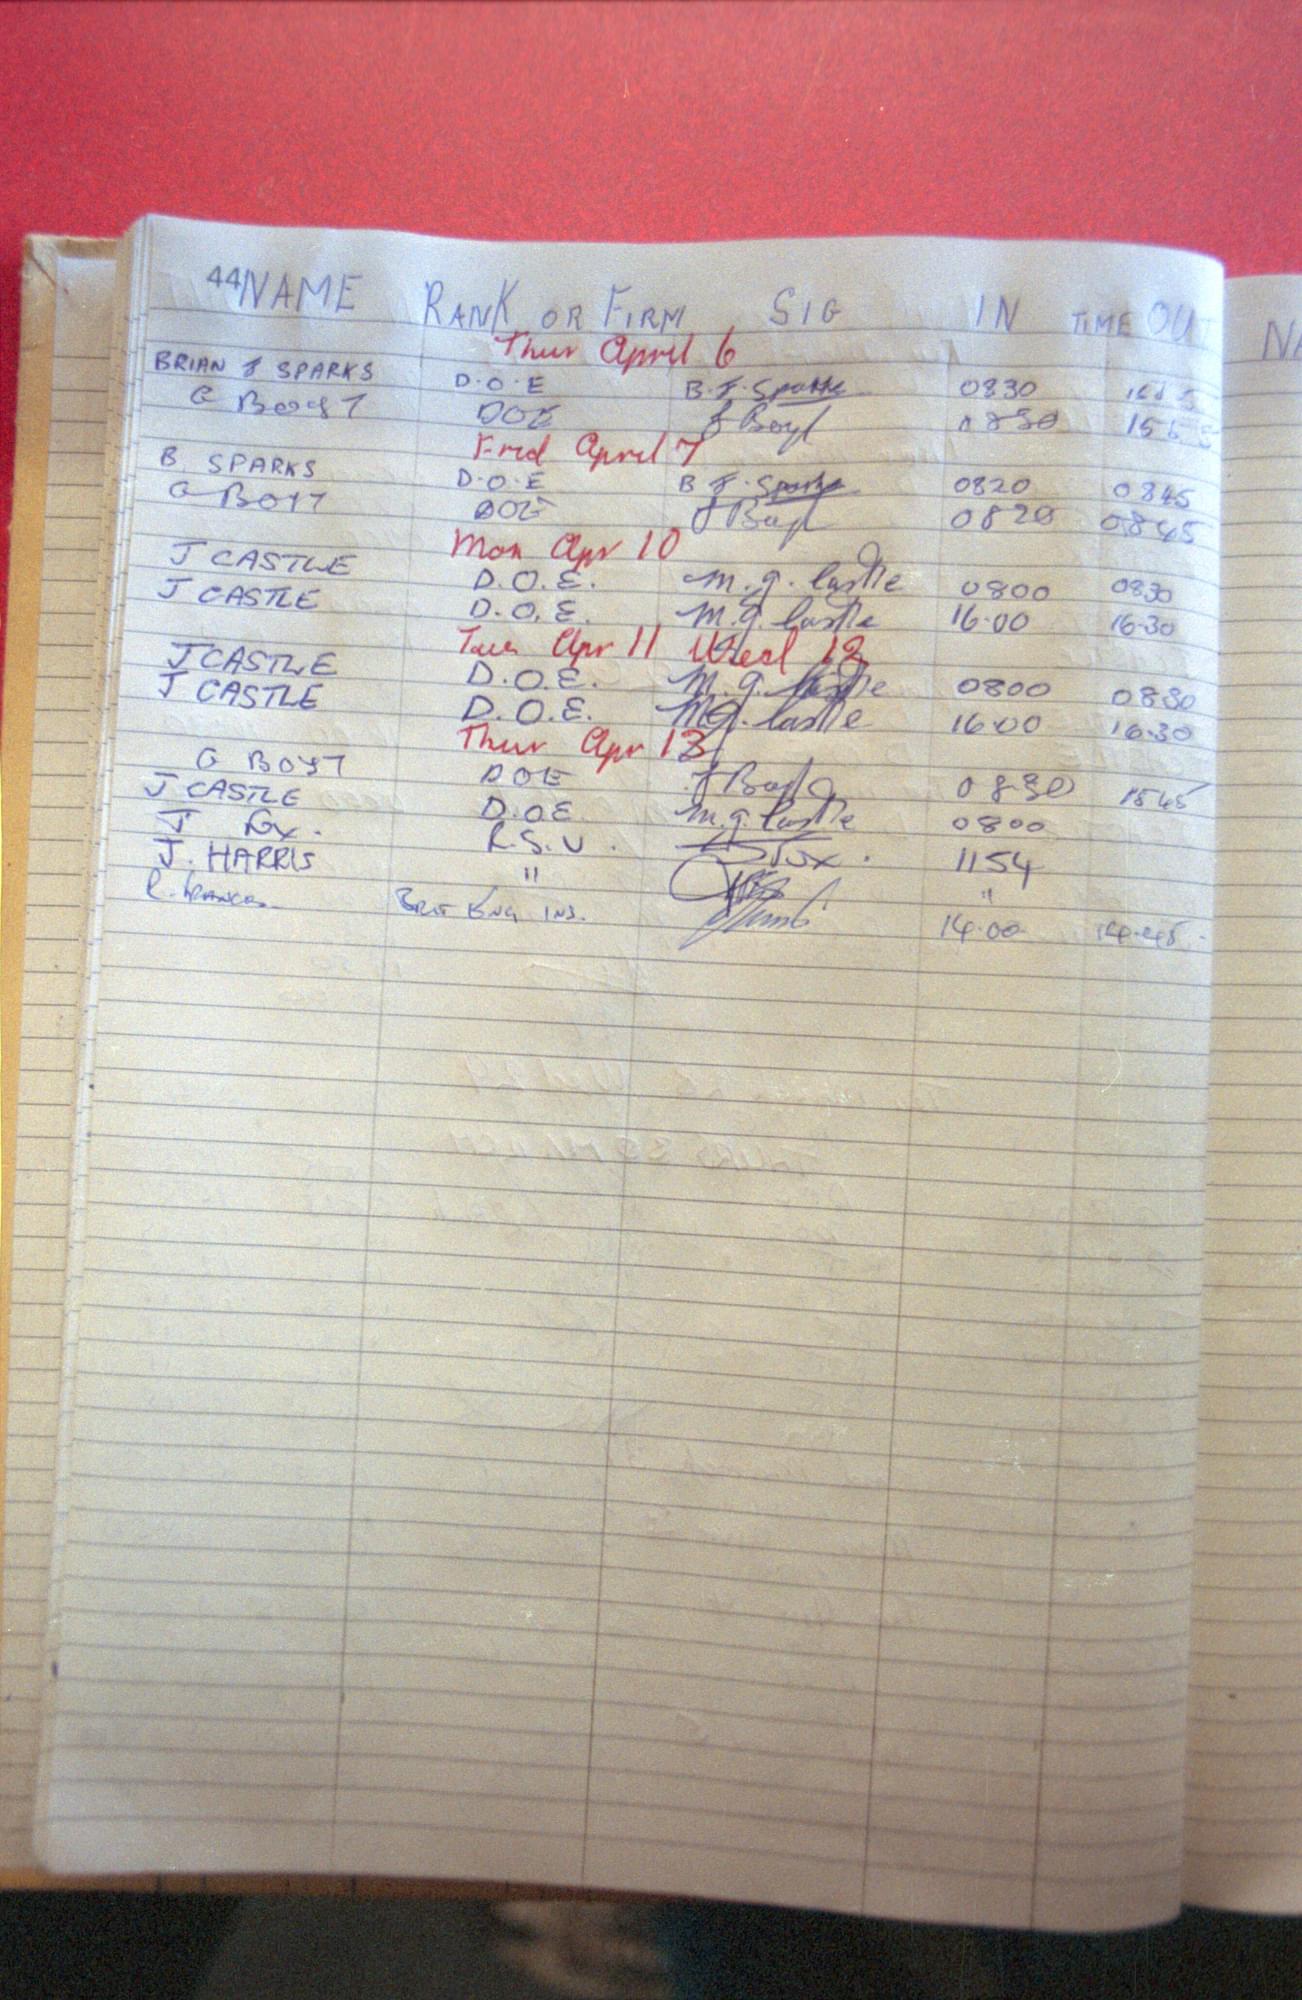 44 NAME RANK OR FIRM SIG IN TIME OUT
Thur April 6
BRIAN F SPARKS D.O.E B.F. Sparks 0830
G BOYT DOE G Boyt 0830
Fred April 7
B. SPARKS D.O.E B F. Sparks 0820 0845
G BOYT DOE G Boyt 0820 0845
Mon Apr 10
J CASTLE D.O.E. M.J. Castle 0800 0830
J CASTLE D.O.E. M.J. Castle 16.00 16.30
Tues Apr 11 Wed 12
J CASTLE D.O.E. M.J. Castle 0800 0830
J CASTLE D.O.E. M.J. Castle 16.00 16.30
Thur Apr 13
G BOYT DOE G Boyt 0830 1545
J CASTLE D.O.E. M.J. Castle 0800
J R.S.U. 1154
J. HARRIS " "
R. BRIT ENG INS. 14.00 14.45
NA